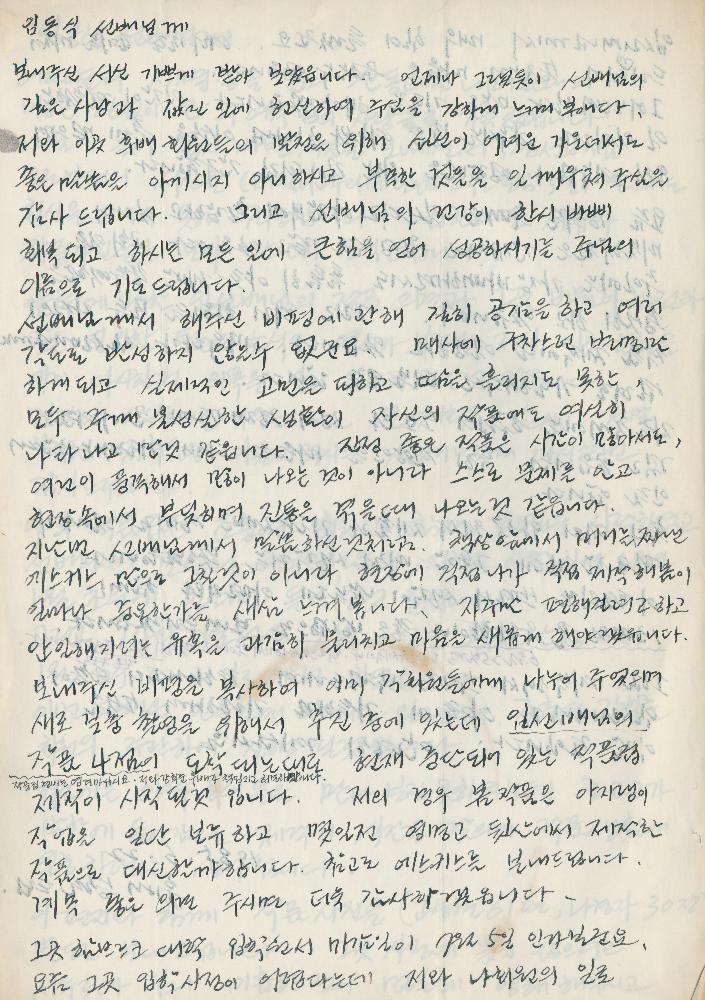 임동식 선배님께
보내주신 서신 기쁘게 받아 보았읍니다. 언제나 그렇듯이 선배님의
깊은 사랑과 일에 헌신하여 주심을 강하게 느껴 봅니다.
저와 이곳 후배 회원들의 발전을 위해 심신이 어려운 가운데서도
좋은 말씀을 아끼시지 아니하시고 부족한 것들을 일깨워 주심을
감사 드립니다. 그리고 선배님의 건강이 한시 바삐
회복되고 하시는 모든 일에 큰힘을 얻어 성공하시기를 주님의
이름으로 기도드립니다.
선배님께서 해주신 비평에 관해 깊히 공감을 하고 여러
각도로 반성하지 않을수 없군요. 매사에 구차스런 변명만
하게되고 실제적인 고민을 피하고 땀을 흘리지도 못한,
모두 불성실한 생활이 자신의 작품에도 여실히
나타나고 만것 같읍니다. 진정 좋은 작품은 시간이 많아서도,
여건이 풍족해서 많이 나오는 것이 아니라 스스로 문제를 안고
현장속에서 부딪히며 진통을 겪을때 나오는것 같읍니다.
지난번 선배님께서 말씀하신것처럼 책상앞에서 머리로
에스키스 만으로 그칠것이 아니라 현장에 직접나가 직접 제작해봄이
얼마나 중요한가를 새삼 느껴 봅니다. 자꾸만 편해질려고하고
안일해지려는 유혹을 과감히 물리치고 마음을 새롭게 해야겠읍니다.
보내주신 비평을 복사하여 여러 각회원들에게 나누어 주었으며
새로 촬영을 위해서 추진 중에 있는데
작품 나점이 도착되는대로 현재 중단되어 있는 작품집
제작이 시작될것 입니다. 저의 경우 봄작품은 야외
작업을 일단 보류하고 몇일전 뒷산에서 제작한
작품으로 대신할까합니다. 참고로 에스키스를 보내드립니다.
계속 좋은 의견 주시면 더욱 감사하겠읍니다.
그곳 함부르크 대학 입학원서 마감일이 7월 5일 인가 보군요.
요즘 그곳 입학사정이 어렵다는데 저와 나회원의 일로